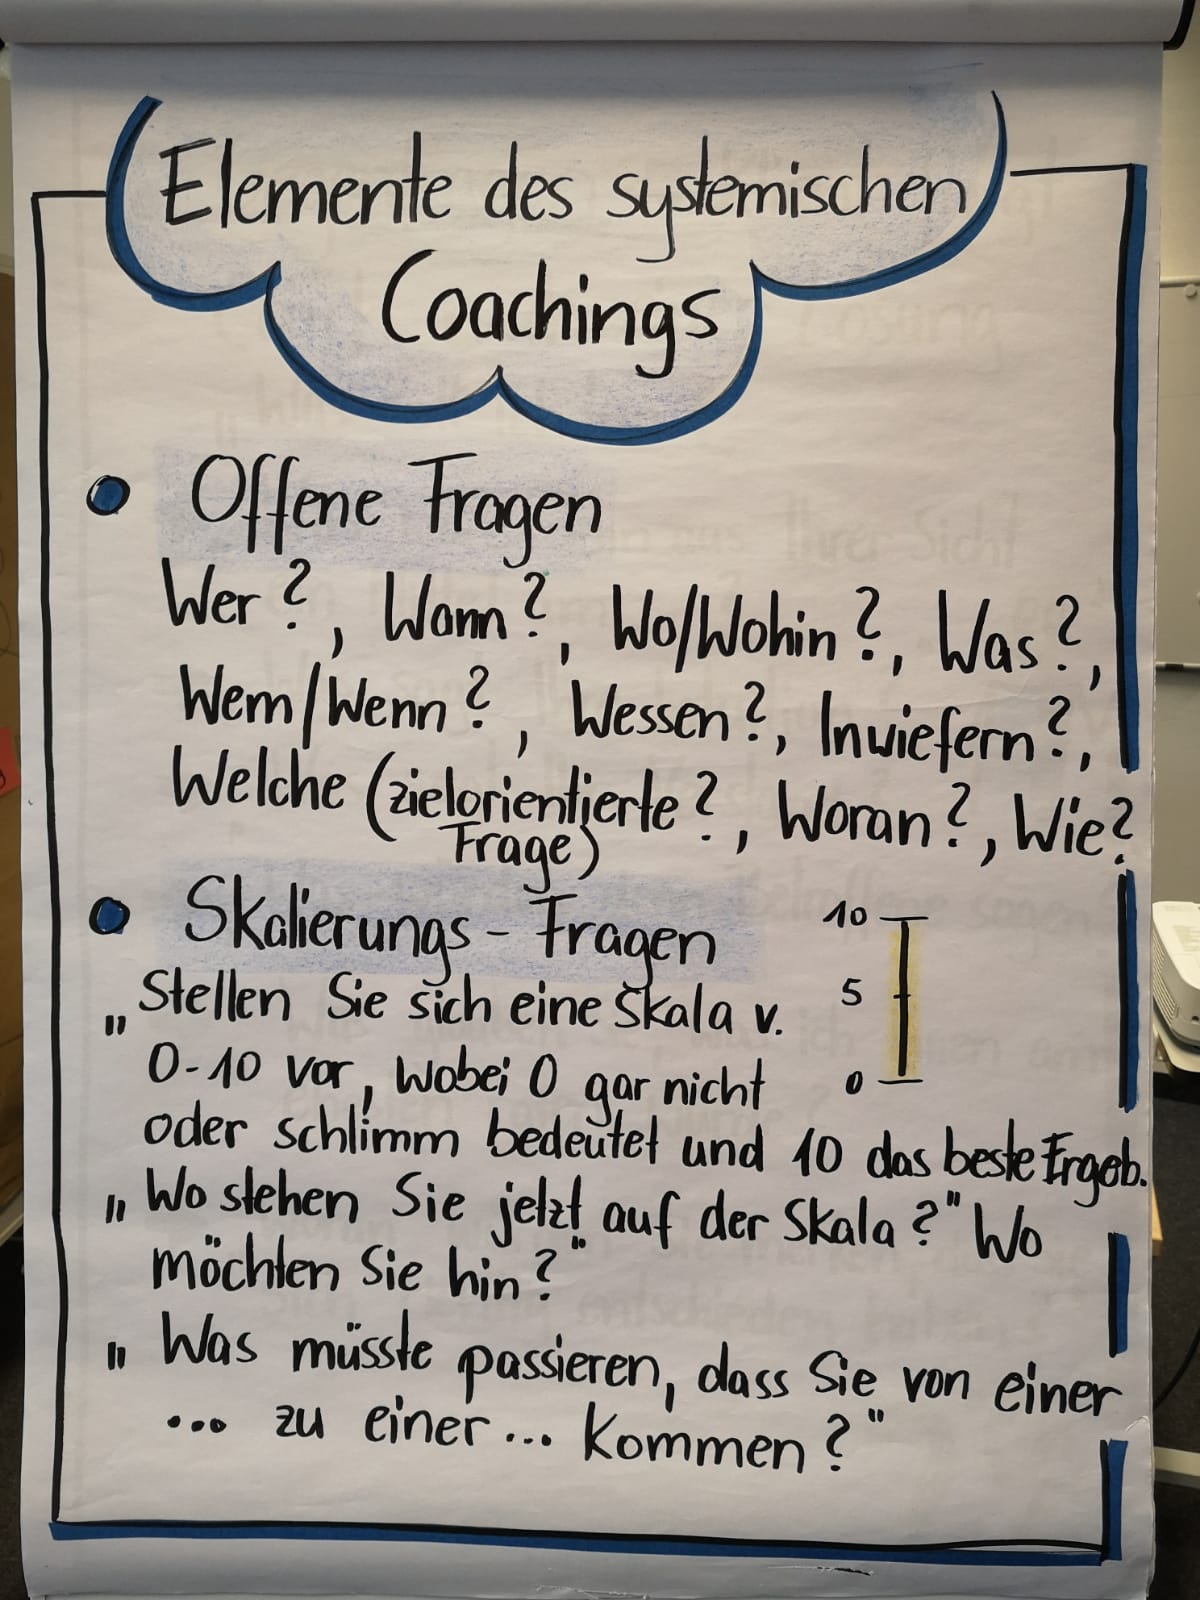 Elemente des systemischen
Coachings
Offene Fragen
Wer?, Wann?, Wo/Wohin?, Was?,
Wem/Wenn?, Wessen?, Inwiefern?,
Welche (zielorientierte?, Woran?, Wie?
Frage)
Skalierungs-Fragen
10
5
0
„Stellen Sie sich eine Skala v.
0-10 vor, wobei 0 gar nicht
oder schlimm bedeutet und 10 das beste Ergeb.
„Wo stehen Sie jetzt auf der Skala?" Wo
möchten Sie hin?"
„Was müsste passieren, dass Sie von einer
... zu einer... kommen?"